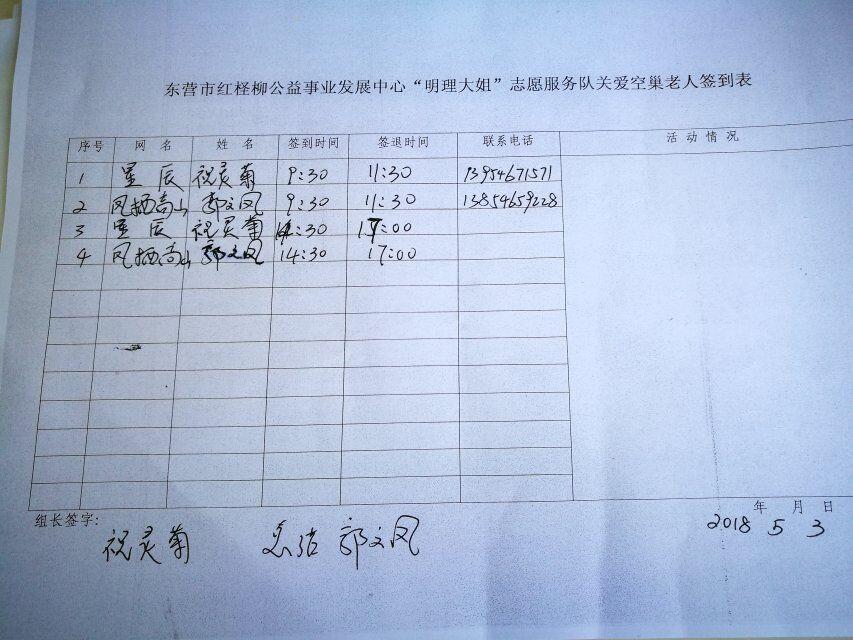 东营市红柽柳公益事业发展中心“明理大姐”志愿服务队关爱空巢老人签到表
序号 网名 姓名 签到时间 签退时间 联系电话 活动情况
1 星辰 祝灵菊 9:30 11:30 13954671571
2 凤栖高山 郭文凤 9:30 11:30 13854659228
3 星辰 祝灵菊 14:30 17:00
4 凤栖高山 郭文凤 14:30 17:00
组长签字: 年 月 日
祝灵菊 总结 郭文凤 2018 5 3